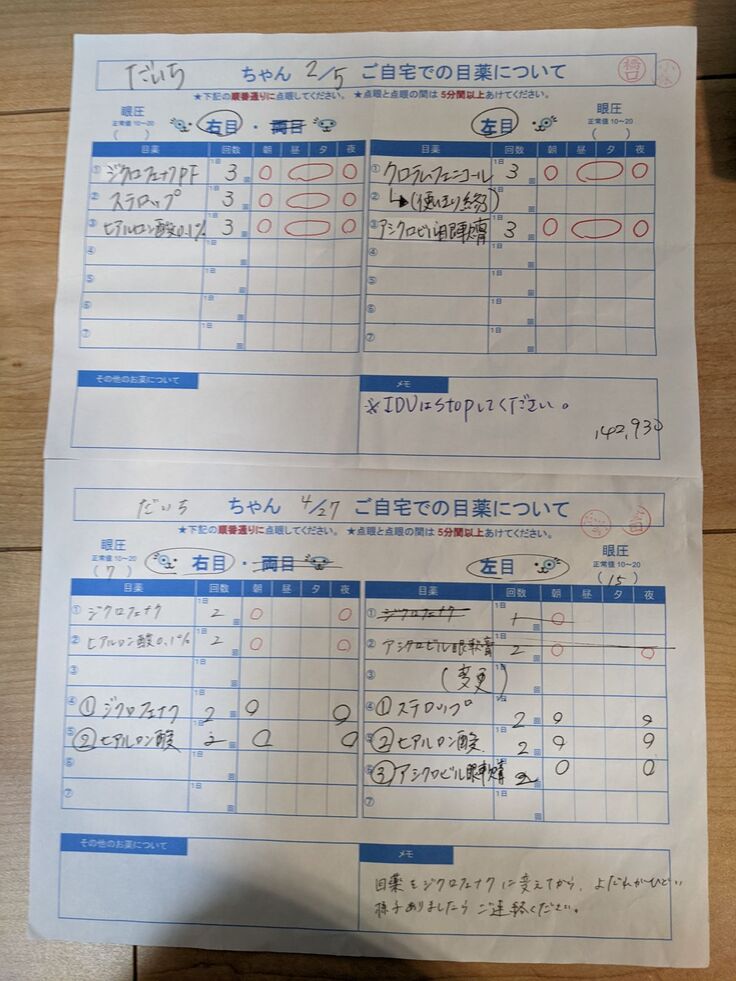 だいち ちゃん 2/5 ご自宅での目薬について
★下記の順番通りに点眼してください。 ★点眼と点眼の間は 5分間以上あけてください。
眼圧 正常値 10~20 ( ) 右目・両目 左目 眼圧 正常値 10~20 ( )
目薬 回数 朝 昼 夕 夜 目薬 回数 朝 昼 夕 夜
① ジクロフェナクPF 1日 3 回 ○ ○ ○ ① クロラムフェニコール 1日 3 回 ○ ○ ○
② ステロップ 1日 3 回 ○ ○ ○ ② ↳(使い終り) 1日 回
③ ヒアルロン酸0.1% 1日 3 回 ○ ○ ○ ③ アシクロビル眼軟膏 1日 3 回 ○ ○ ○
④ 1日 回 ④ 1日 回
⑤ 1日 回 ⑤ 1日 回
⑥ 1日 回 ⑥ 1日 回
⑦ 1日 回 ⑦ 1日 回
その他のお薬について メモ
※IDUはstopしてください。
142,930
だいち ちゃん 4/27 ご自宅での目薬について
★下記の順番通りに点眼してください。 ★点眼と点眼の間は 5分間以上あけてください。
眼圧 正常値 10~20 ( 7 ) 右目・両目 左目 眼圧 正常値 10~20 ( 15 )
目薬 回数 朝 昼 夕 夜 目薬 回数 朝 昼 夕 夜
① ジクロフェナク 1日 2 回 ○ ○ ① ジクロフェナク 1日 1 回 ○
② ヒアルロン酸0.1% 1日 2 回 ○ ○ ② アシクロビル眼軟膏 1日 2 回 ○ ○
③ 1日 回 ③ (変更) 1日 回
④ ①ジクロフェナク 1日 2 回 ○ ○ ④ ①ステロップ 1日 2 回 ○ ○
⑤ ②ヒアルロン酸 1日 2 回 ○ ○ ⑤ ②ヒアルロン酸 1日 2 回 ○ ○
⑥ 1日 回 ⑥ ③アシクロビル眼軟膏 1日 2 回 ○ ○
⑦ 1日 回 ⑦ 1日 回
その他のお薬について メモ
目薬をジクロフェナクに変えてから、よだれがひどい
様子ありましたらご連絡ください。